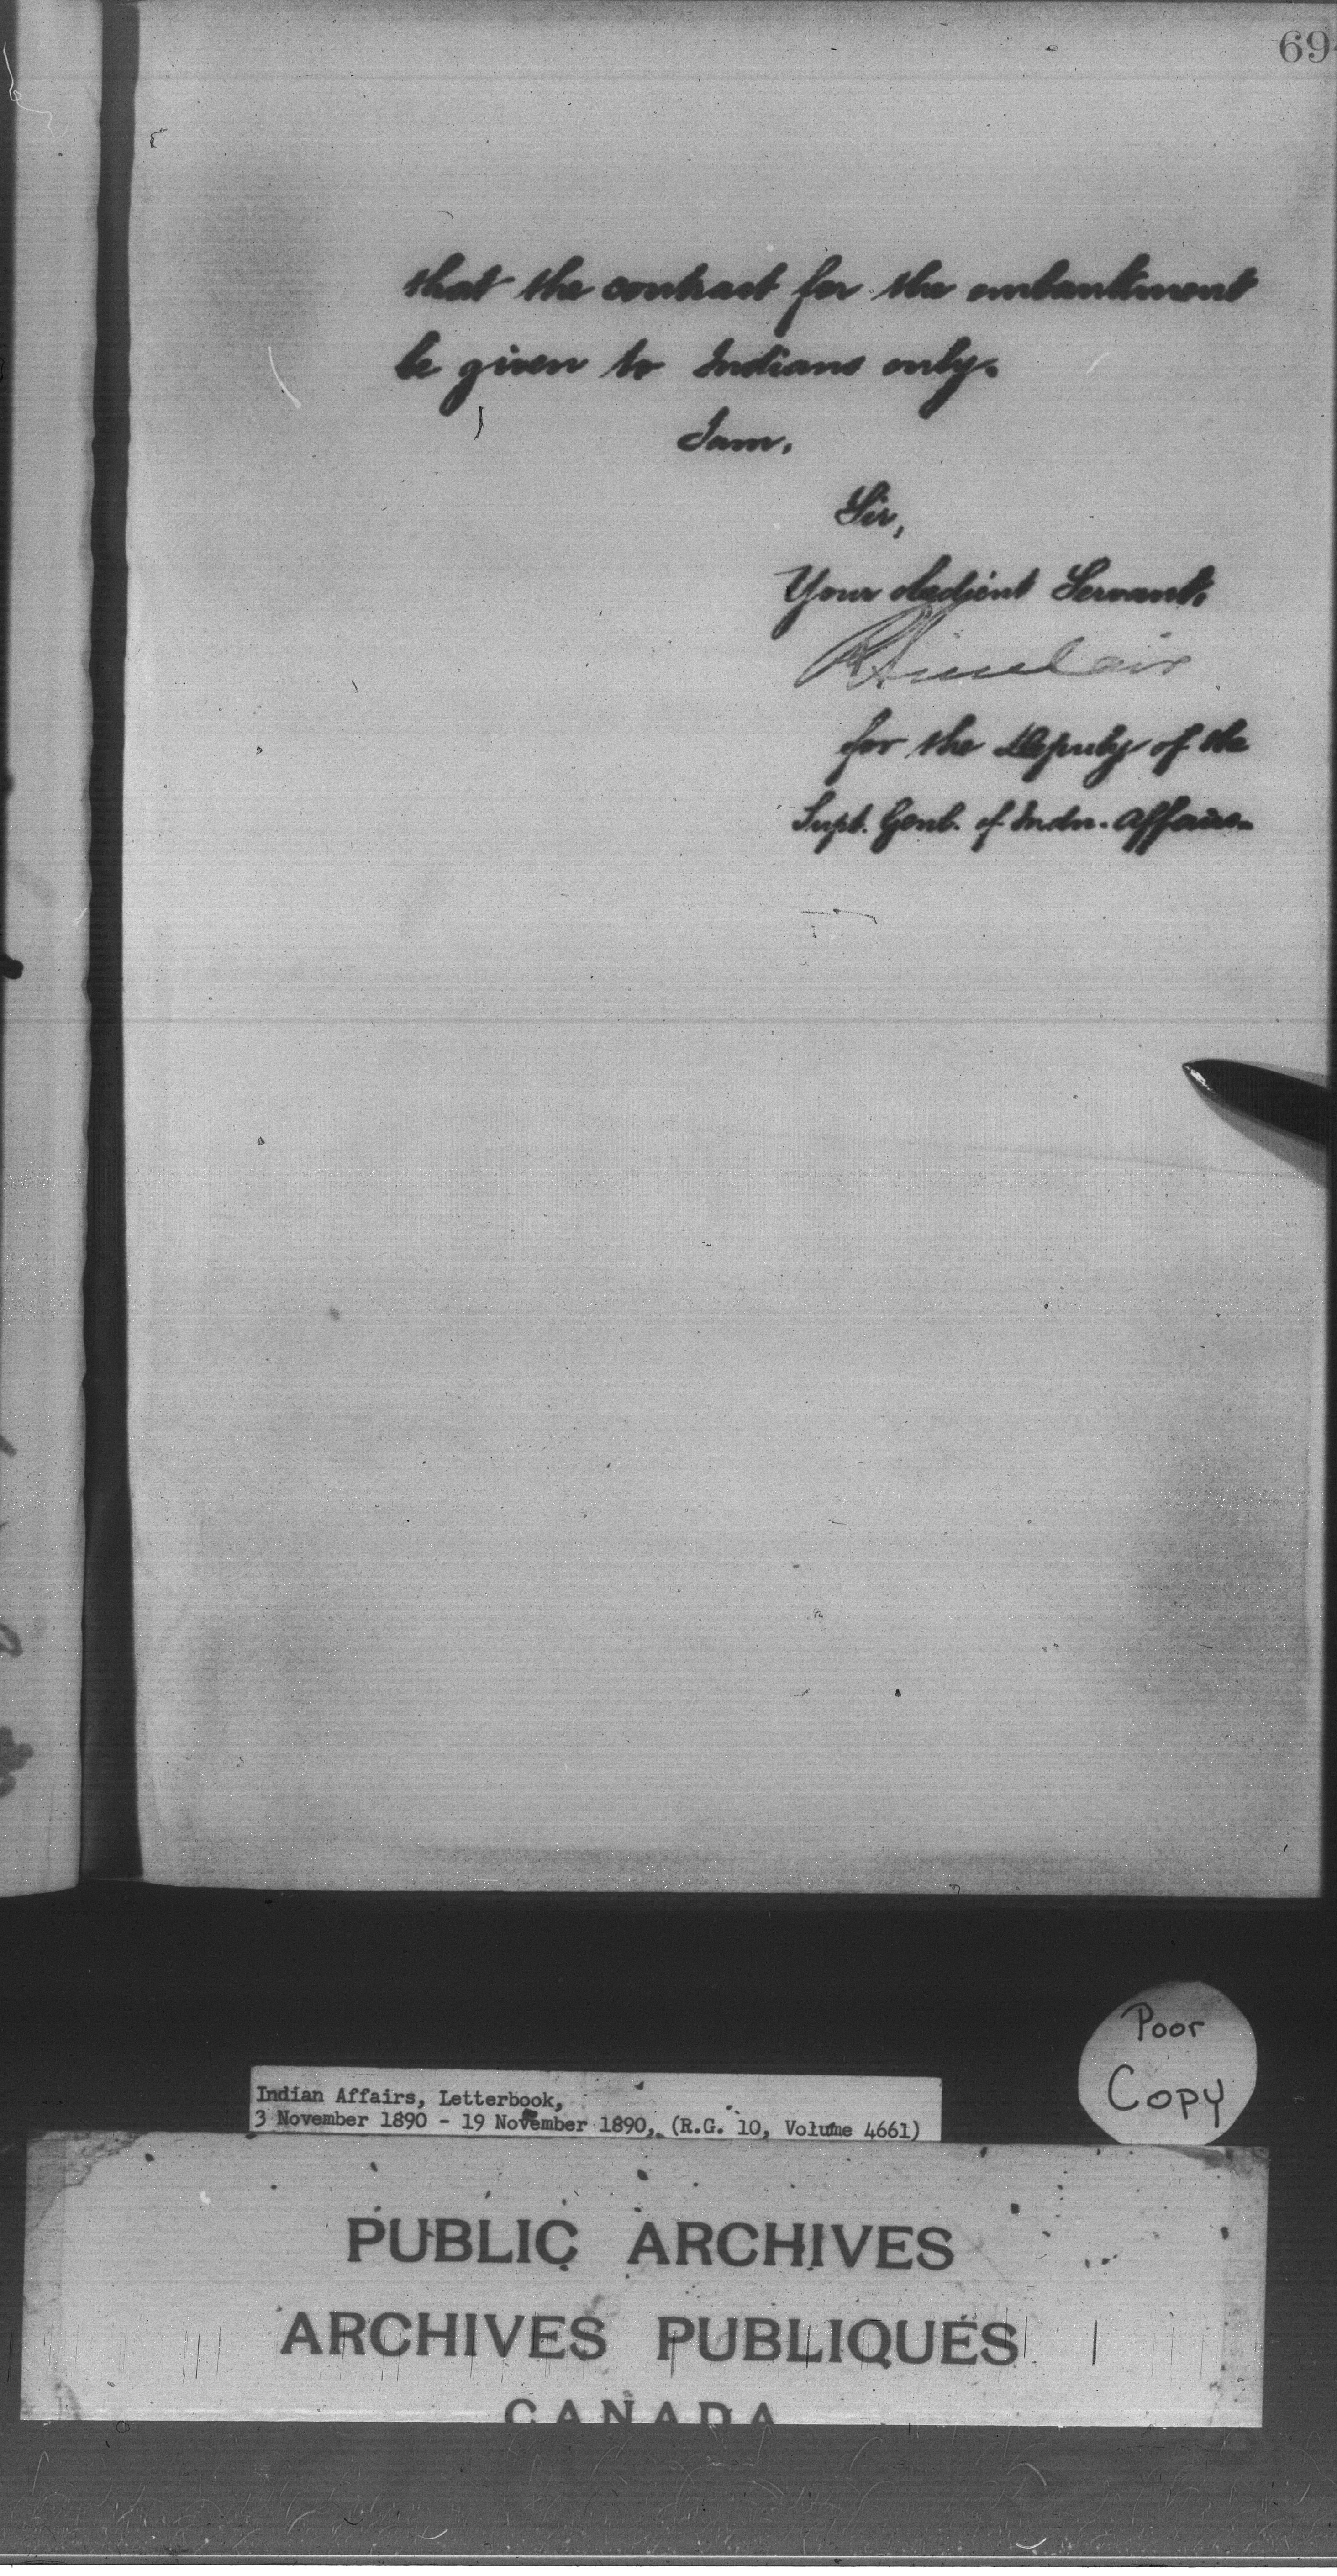 69
that the contract for the embankment
be given to Indians only.
I am,
Sir,
Your obedient Servant,
R Sinclair
for the Deputy of the
Supt. Genl. of Indn. Affairs.
Poor
Copy
Indian Affairs, Letterbook,
3 November 1890 - 19 November 1890, (R.G. 10, Volume 4661)
PUBLIC ARCHIVES
ARCHIVES PUBLIQUES
CANADA